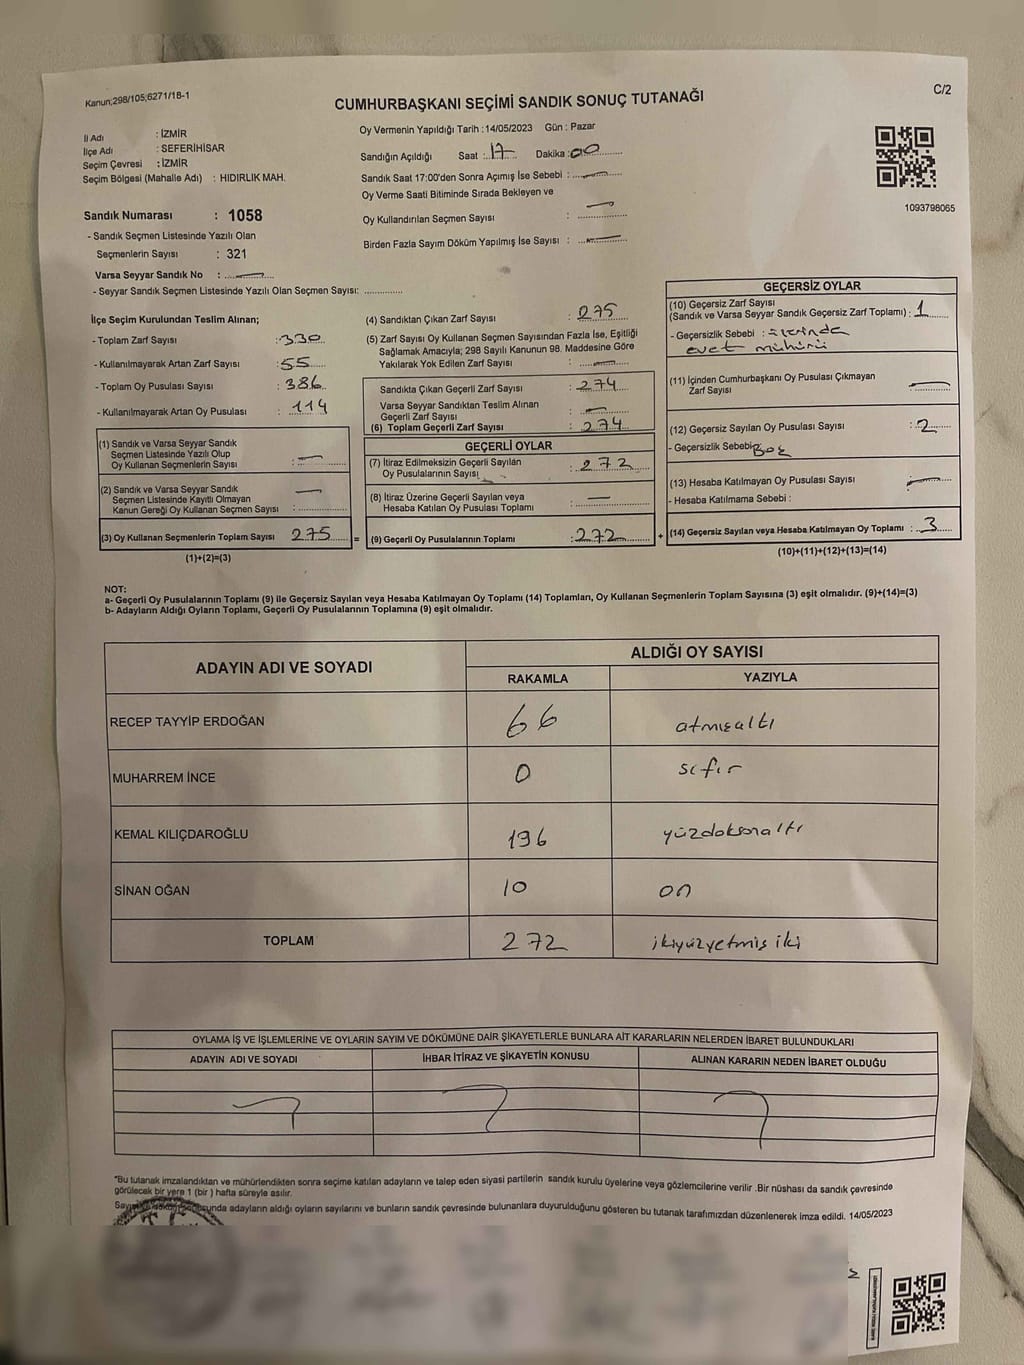 Kanun;298/105;6271/18-1
C/2
CUMHURBAŞKANI SEÇİMİ SANDIK SONUÇ TUTANAĞI
İl Adı : İZMİR
İlçe Adı : SEFERİHİSAR
Seçim Çevresi : İZMİR
Seçim Bölgesi (Mahalle Adı) : HIDIRLIK MAH.
Oy Vermenin Yapıldığı Tarih :14/05/2023 Gün : Pazar
Sandığın Açıldığı Saat : 17 Dakika : 00
Sandık Saat 17:00'den Sonra Açımış İse Sebebi : —
Oy Verme Saati Bitiminde Sırada Bekleyen ve
Oy Kullandırılan Seçmen Sayısı : —
Birden Fazla Sayım Döküm Yapılmış İse Sayısı : —
1093798065
Sandık Numarası : 1058
- Sandık Seçmen Listesinde Yazılı Olan
Seçmenlerin Sayısı : 321
Varsa Seyyar Sandık No : —
- Seyyar Sandık Seçmen Listesinde Yazılı Olan Seçmen Sayısı: ..............
İlçe Seçim Kurulundan Teslim Alınan;
- Toplam Zarf Sayısı : 330
- Kullanılmayarak Artan Zarf Sayısı : 55
- Toplam Oy Pusulası Sayısı : 386
- Kullanılmayarak Artan Oy Pusulası : 114
(1) Sandık ve Varsa Seyyar Sandık
Seçmen Listesinde Yazılı Olup
Oy Kullanan Seçmenlerin Sayısı : —
(2) Sandık ve Varsa Seyyar Sandık
Seçmen Listesinde Kayıtlı Olmayan
Kanun Gereği Oy Kullanan Seçmen Sayısı : —
(3) Oy Kullanan Seçmenlerin Toplam Sayısı 275 =
(1)+(2)=(3)
(4) Sandıktan Çıkan Zarf Sayısı : 275
(5) Zarf Sayısı Oy Kullanan Seçmen Sayısından Fazla İse, Eşitliği
Sağlamak Amacıyla; 298 Sayılı Kanunun 98. Maddesine Göre
Yakılarak Yok Edilen Zarf Sayısı : —
Sandıkta Çıkan Geçerli Zarf Sayısı : 274
Varsa Seyyar Sandıktan Teslim Alınan
Geçerli Zarf Sayısı : —
(6) Toplam Geçerli Zarf Sayısı : 274
GEÇERLİ OYLAR
(7) İtiraz Edilmeksizin Geçerli Sayılan
Oy Pusulalarının Sayısı : 272
(8) İtiraz Üzerine Geçerli Sayılan veya
Hesaba Katılan Oy Pusulası Toplamı : —
(9) Geçerli Oy Pusulalarının Toplamı : 272 +
GEÇERSİZ OYLAR
(10) Geçersiz Zarf Sayısı
(Sandık ve Varsa Seyyar Sandık Geçersiz Zarf Toplamı) : 1
- Geçersizlik Sebebi : üzerinde
evet mühürü
(11) İçinden Cumhurbaşkanı Oy Pusulası Çıkmayan
Zarf Sayısı : —
(12) Geçersiz Sayılan Oy Pusulası Sayısı : 2
- Geçersizlik Sebebi: Boş
(13) Hesaba Katılmayan Oy Pusulası Sayısı : —
- Hesaba Katılmama Sebebi :
(14) Geçersiz Sayılan veya Hesaba Katılmayan Oy Toplamı : 3
(10)+(11)+(12)+(13)=(14)
NOT:
a- Geçerli Oy Pusulalarının Toplamı (9) ile Geçersiz Sayılan veya Hesaba Katılmayan Oy Toplamı (14) Toplamları, Oy Kullanan Seçmenlerin Toplam Sayısına (3) eşit olmalıdır. (9)+(14)=(3)
b- Adayların Aldığı Oyların Toplamı, Geçerli Oy Pusulalarının Toplamına (9) eşit olmalıdır.
ADAYIN ADI VE SOYADI
ALDIĞI OY SAYISI
RAKAMLA YAZIYLA
RECEP TAYYİP ERDOĞAN 66 atmışaltı
MUHARREM İNCE 0 sıfır
KEMAL KILIÇDAROĞLU 196 yüzdoksanaltı
SİNAN OĞAN 10 on
TOPLAM 272 ikiyüzyetmiş iki
OYLAMA İŞ VE İŞLEMLERİNE VE OYLARIN SAYIM VE DÖKÜMÜNE DAİR ŞİKAYETLERLE BUNLARA AİT KARARLARIN NELERDEN İBARET BULUNDUKLARI
ADAYIN ADI VE SOYADI İHBAR İTİRAZ VE ŞİKAYETİN KONUSU ALINAN KARARIN NEDEN İBARET OLDUĞU
*Bu tutanak imzalandıktan ve mühürlendikten sonra seçime katılan adayların ve talep eden siyasi partilerin sandık kurulu üyelerine veya gözlemcilerine verilir .Bir nüshası da sandık çevresinde
görülecek bir yere 1 (bir ) hafta süreyle asılır.
adayların aldığı oyların sayılarını ve bunların sandık çevresinde bulunanlara duyurulduğunu gösteren bu tutanak tarafımızdan düzenlenerek imza edildi. 14/05/2023